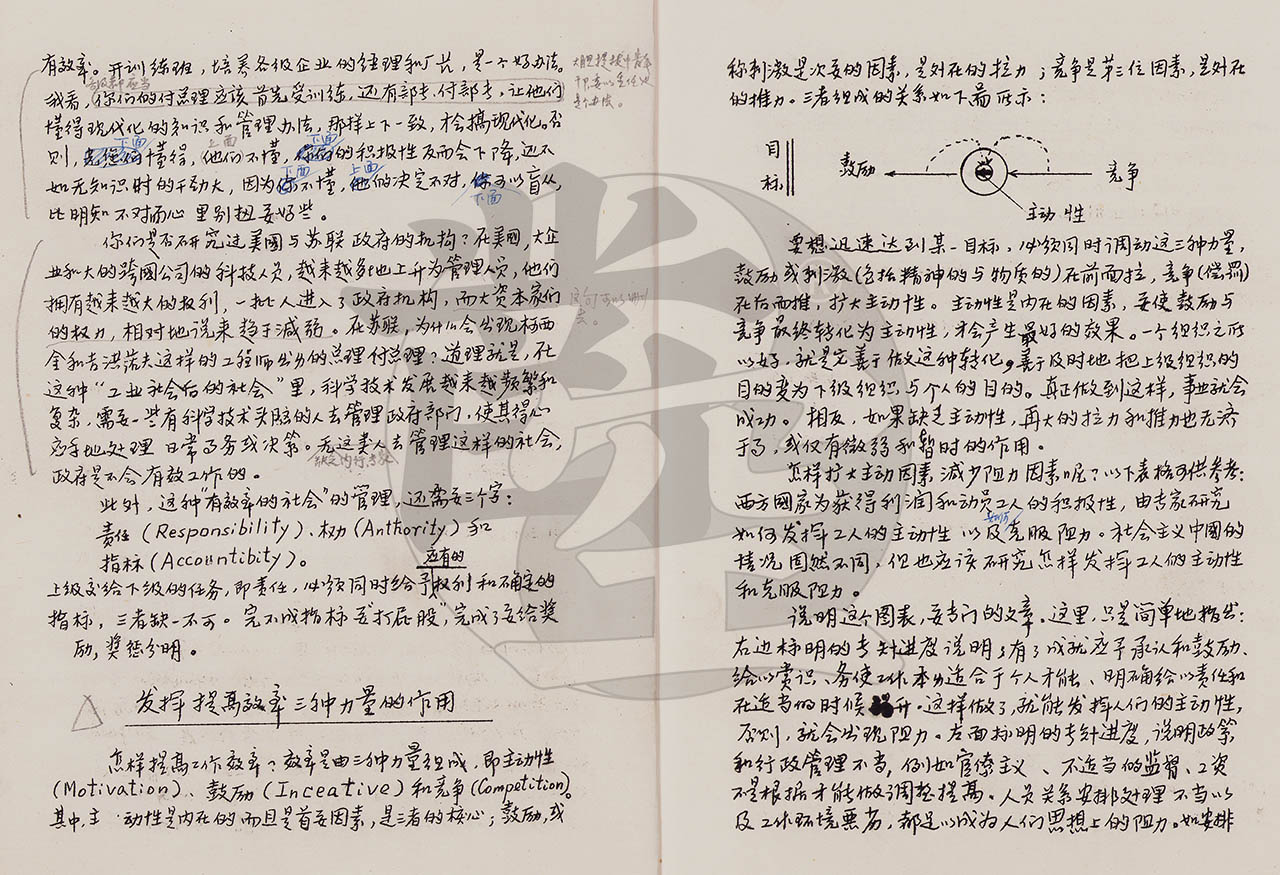 有效率。开训练班，培养各级企业的经理和厂长，是一个好办法。
我看，你们的付总理应该首先受训练，还有部长，付部长，让他们
懂得现代化的知识和管理办法，那样上下一致，才会搞现代化。否
则，下面懂得，上面他们不懂，下面的积极性反而会下降，还不
如无知识时的干劲大，因为下面不懂，上面的决定不对，下面可以盲从，
比明知不对而心里别扭要好些。
你们是否研究过美國与苏联政府的机构？在美國，大企
业和大的跨國公司的科技人员，越来越多地上升为管理人员，他们
拥有越来越大的权利，一批人进入了政府机构，而大资本家们
的权力，相对地说来趋于减弱。在苏联，为什么会出现柯西
金和吉洪诺夫这样的工程师出身的总理付总理？道理就是，在
这种“工业社会后的社会”里，科学技术发展越来越频繁和
复杂，需要一些有科学技术头脑的人去管理政府部门，使其得心
应手地处理日常事务或决策。无这类人去管理这样的社会，
政府是不会有效工作的。
此外，这种“有效率的社会”的管理，还需要三个字：
责任（Responsibility）、权力（Anthority）和
指标（Accountibity）。
应有的
上级交给下级的任务，即责任，必须同时给予权利和确定的
指标，三者缺一不可。完不成指标要“打屁股”，完成了要给奖
励，奖惩分明。
发挥提高效率三种力量的作用
怎样提高工作效率？效率是由三种力量组成，即主动性
（Motivation）、鼓励（Inceative）和竞争（Competition）。
其中，主动性是内在的而且是首要因素，是三者的核心；鼓励，或
大胆提拔中青年
这句可以删
去。
称刺激是次要的因素，是外在的拉力；竞争是第三位因素，是外在
的推力。三者组成的关系如下图所示：
目标
鼓励
竞争
主动性
要想迅速达到某一目标，必须同时调动这三种力量，
鼓励或刺激（包括精神的与物质的）在前面拉，竞争（偿罚）
在后面推，扩大主动性。主动性是内在的因素，要使鼓励与
竞争最终转化为主动性，才会产生最好的效果。一个组织之所
以好，就是完善于做这种转化。善于及时地把上级组织的
目的变为下级组织与个人的目的。真正做到这样，事业就会
成功。相反，如果缺乏主动性，再大的拉力和推力也无济
于事，或仅有微弱和暂时的作用。
怎样扩大主动因素，减少阻力因素呢？以下表格可供参考：
西方國家为获得利润和动员工人的积极性，由专家研究
如何发挥工人的主动性以及如何克服阻力。社会主义中國的
情况固然不同，但也应该研究怎样发挥工人的主动性
和克服阻力。
说明这个图表，要专门的文章。这里，只是简单地指出：
右边标明的专针进度说明，有了成就应予承认和鼓励、
给以赏识、务使工作本身适合于个人才能、明确给以责任和
在适当的时候升。这样做了，就能发挥人们的主动性，
否则，就会出现阻力。左面标明的专针进度，说明政策
和行政管理不当，例如官僚主义、不适当的监督、工资
不是根据才能做调整提高。人员关系安排处理不当以
及工作环境恶劣，都足以成为人们思想上的阻力。如安排